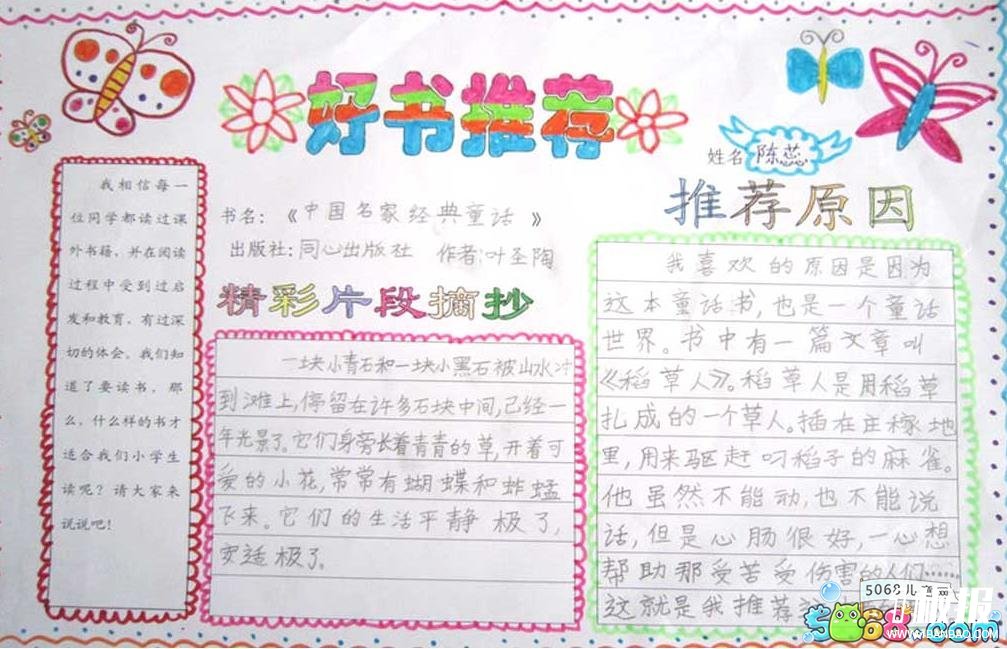 好书推荐
姓名 陈蕊
我相信每一
位同学都读过课
外书籍，并在阅读
过程中受到过启
发和教育，有过深
切的体会。我们知
道了要读书，那
么，什么样的书才
适合我们小学生
读呢？请大家来
说说吧！
书名：《中国名家经典童话》
出版社：同心出版社 作者：叶圣陶
精彩片段摘抄
一块小青石和一块小黑石被山水冲
到滩上，停留在许多石块中间，已经一
年光景了。它们身旁长着青青的草，开着可
爱的小花，常常有蝴蝶和蚱蜢
飞来。它们的生活平静极了，
安适极了。
推荐原因
我喜欢的原因是因为
这本童话书，也是一个童话
世界。书中有一篇文章叫
《稻草人》。稻草人是用稻草
扎成的一个草人。插在庄稼地
里，用来驱赶叼稻子的麻雀。
他虽然不能动，也不能说
话，但是心肠很好，一心想
帮助那受苦受伤害的人们……
这就是我推荐
5068儿
板报
5068.com